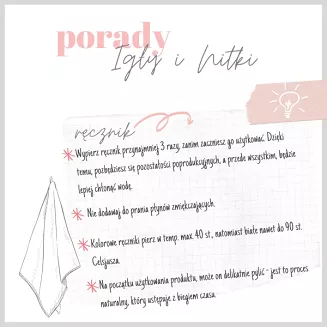 porady
Igły i Nitki
ręcznik
* Wypierz ręcznik przynajmniej 3 razy, zanim zaczniesz go użytkować. Dzięki
temu, pozbędziesz się pozostałości poprodukcyjnych, a przede wszystkim, będzie
lepiej chłonąć wodę.
* Nie dodawaj do prania płynów zmiękczających.
* Kolorowe ręczniki pierz w temp. max. 40 st., natomiast białe nawet do 90 st.
Celsjusza.
* Na początku użytkowania produktu, może on delikatnie pylić - jest to proces
naturalny, który ustępuje z biegiem czasu.